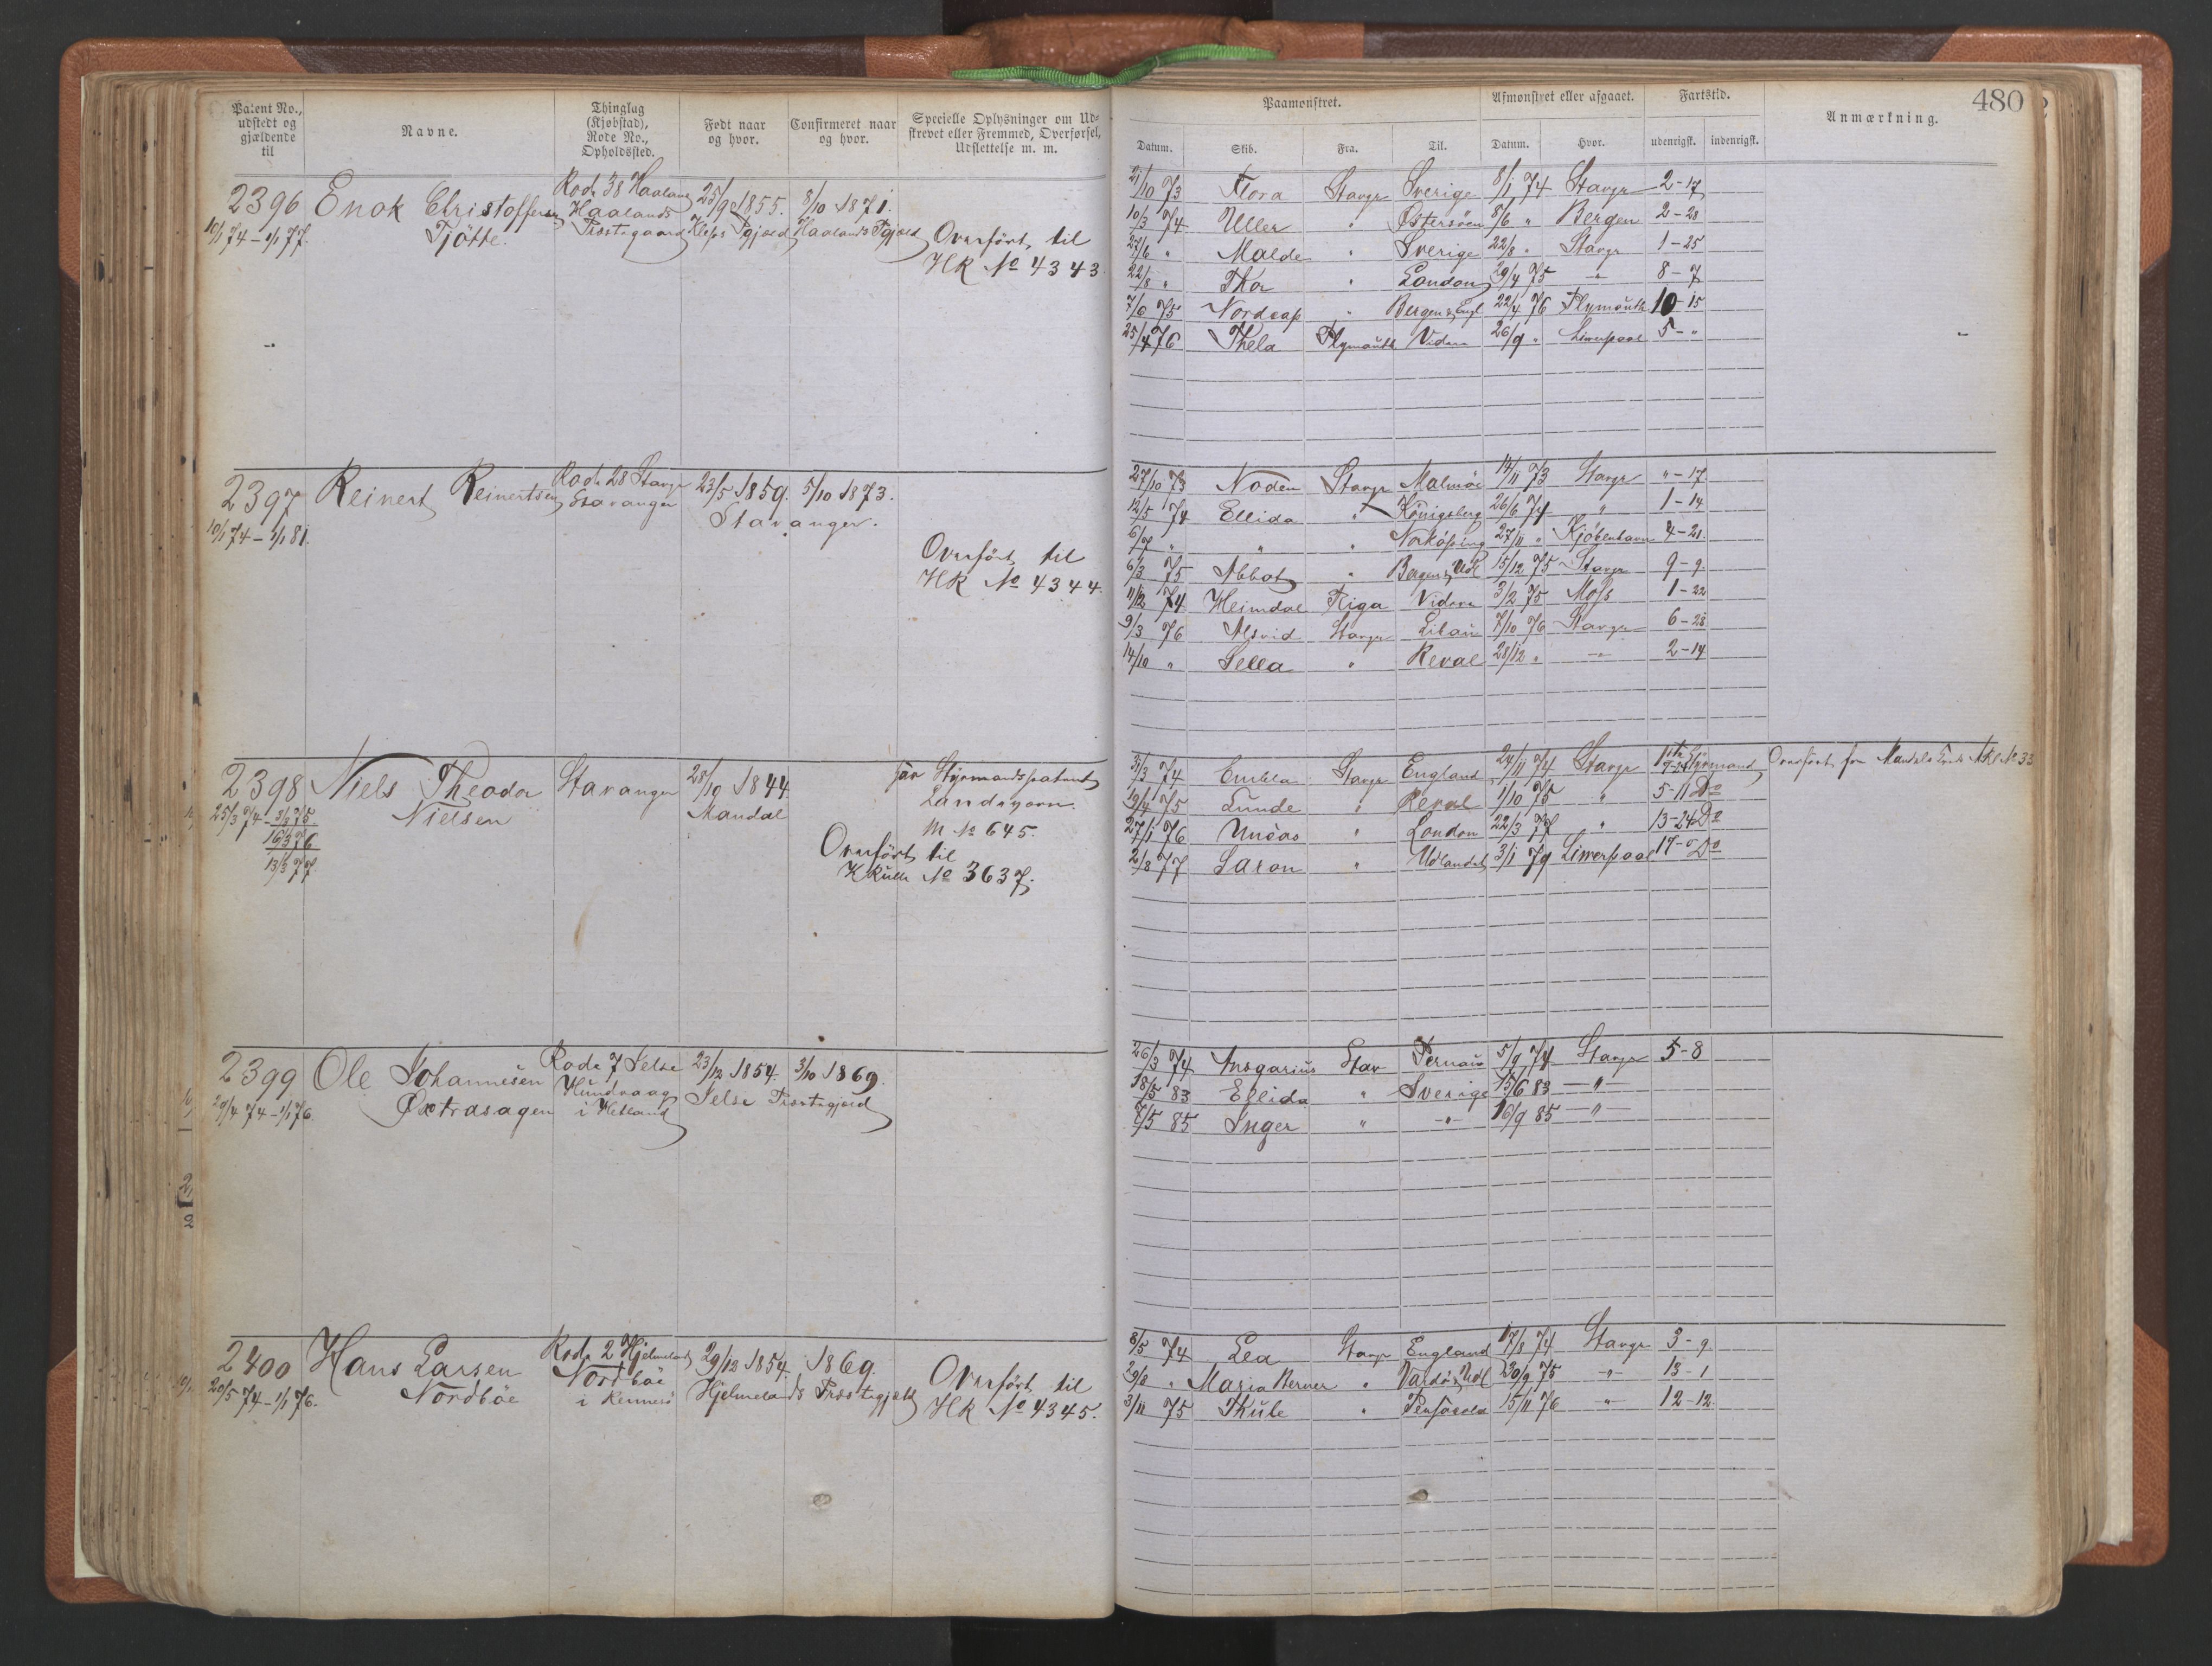 480
Patent No., udstedt og gjældende til
Navne.
Thinglag (Kjøbstad), Rode No., Opholdssted.
Født naar og hvor.
Confirmeret naar og hvor.
Specielle Oplysninger om Udskrevet eller Fremmed, Overførsel, Udslettelse m. m.
Paamønstret.
Afmønstret eller afgaaet.
Fartstid.
Anmærkning.
Datum. Skib. Fra. Til. Datum. Hvor. udenrigsk. indenrigsk.
2396 Enok Christoffersen Rode 38 Haaland 25/9 1855. 8/10 1871.
10/1 74 - 1/1 77. Tjötte. Haalands Præstegaard Klepps Pgjæld Haalands Pgjæld
Overført til
HR No 4343
21/10 73 Flora Stavgr Sverige 8/1 74 Stavgr 2-17
10/3 74 Uller " Østersöen 8/6 " Bergen 2-28
27/6 " Malde " Sverige 22/8 " Stavgr 1-25
22/8 " Thor " London 29/4 75 " 8-7
7/6 75 Nordcap " Bergen & Engl 22/4 76 Plymouth 10-15
25/4 76 Thela Plymouth Videre 26/9 " Liverpool 5-"
2397 Reinert Reinertsen Rode 28 Stavgr 23/5 1859. 5/10 1873.
10/1 74 - 1/1 81. Stavanger Stavanger.
Overført til
HR No 4344.
27/10 73 Noden Stavgr Malmöe 14/11 73 Stavgr "-17
12/5 74 Ellida " Königsberg 26/6 74 " 1-14
6/7 " " " Norköping 27/11 " Kjöbenhavn 4-21
6/3 75 Abbot " Bergen & Udl 15/12 75 Stavgr 9-9
11/12 74 Heimdal Riga Videre 3/2 75 Moss 1-22
9/3 76 Alsvid Stavgr Libau 7/10 76 Stavgr 6-28
14/10 " Sella " Reval 28/12 " " 2-14
2398 Niels Theodor Stavanger 28/10 1844
25/3 74 - 3/3 75 Nielsen Mandal
16/3 76
13/3 77
har Styrmandspatent
Landsvorn.
M No 645.
Overført til
HRulle No 3637.
31/3 74 Embla Stavgr England 24/11 74 Stavgr 7-24 1ste Styrmand Overført fra Mandals
19/4 75 Lunde " Reval 1/10 75 " 5-11 Do
27/1 76 Uncas " London 22/3 77 " 13-24 Do
2/8 77 Saron " Udlandet 3/1 79 Liverpool 17-" Do
2399 Ole Johannesen Rode 7 Jelse 23/12 1854. 3/10 1869.
29/4 74 - 1/1 76. Østrasagen Hundvaag i Hetland Jelse Præstegjæld
26/3 74 Ansgarius Stav Pernau 5/9 74 Stavgr 5-8
18/5 83 Ellida " Sverige 15/6 83 "
7/5 85 Inger " " 16/9 85 "
2400 Hans Larsen Rode 2 Hjelmeland 29/12 1854. 1869.
20/5 74 - 1/1 76. Nordböe Nordböe i Rennesö Hjelmelands Præstegjæld
Overført til
HR No 4345.
8/5 74 Lea Stavgr England 17/8 74 Stavgr 3-9
29/8 " Maria Werner " Vardö & Udl 30/9 75 " 13-1
3/11 75 Thule " Pensacola 15/11 76 " 12-12